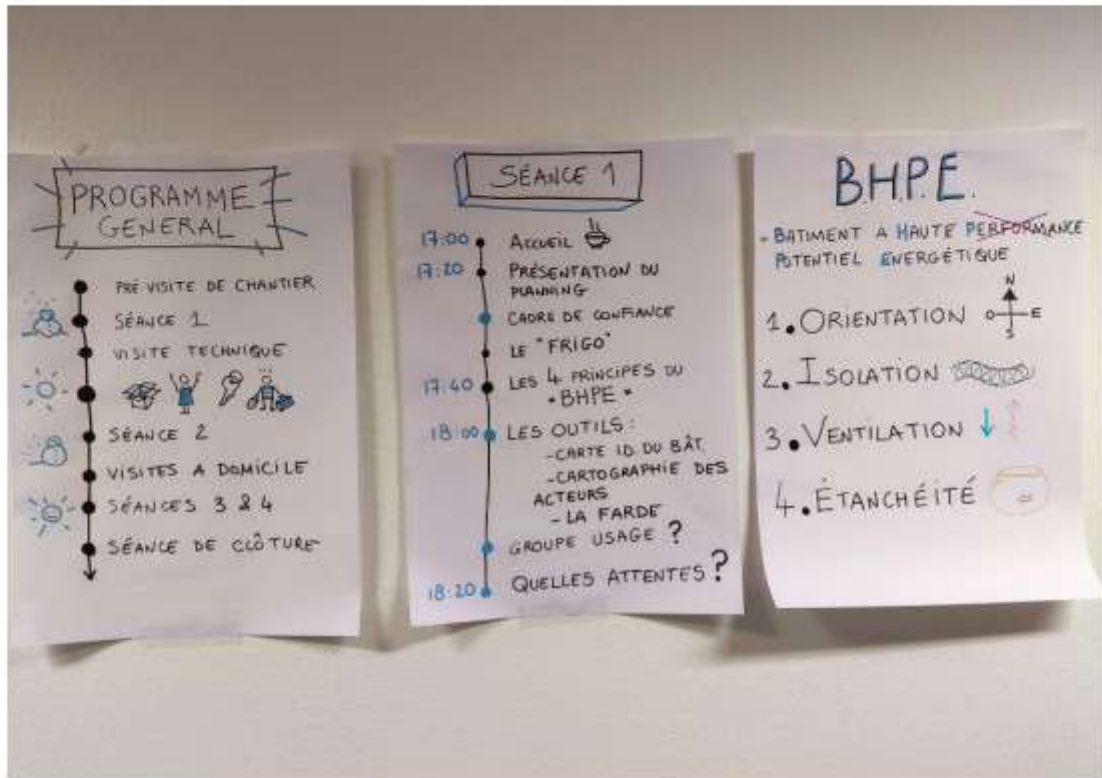 PROGRAMME
GENERAL
PRÉ VISITE DE CHANTIER
SÉANCE 1
VISITE TECHNIQUE
SÉANCE 2
VISITES A DOMICILE
SÉANCES 3 & 4
SÉANCE DE CLÔTURE
SÉANCE 1
17:00 ACCUEIL
17:20 PRÉSENTATION DU
PLANNING
CADRE DE CONFIANCE
LE "FRIGO"
17:40 LES 4 PRINCIPES DU
"BHPE"
18:00 LES OUTILS:
-CARTE ID DU BÂT.
-CARTOGRAPHIE DES
ACTEURS
- LA FARDE
GROUPE USAGE ?
18:20 QUELLES ATTENTES ?
B.H.P.E.
- BATIMENT A HAUTE PERFORMANCE
POTENTIEL ENERGÉTIQUE
N
1. ORIENTATION O E
S
2. ISOLATION
3. VENTILATION
4. ÉTANCHÉITÉ